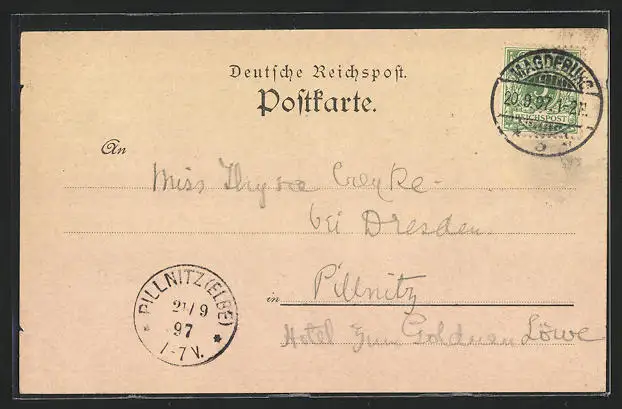 Deutsche Reichspost.
Postkarte.
MAGDEBURG
20.9.97.1-2N.
REICHSPOST
5
An
Miss
bei Dresden.
in Pillnitz
Hotel Zum Goldnen Löwe
PILLNITZ (ELBE)
21/9
97
7V.